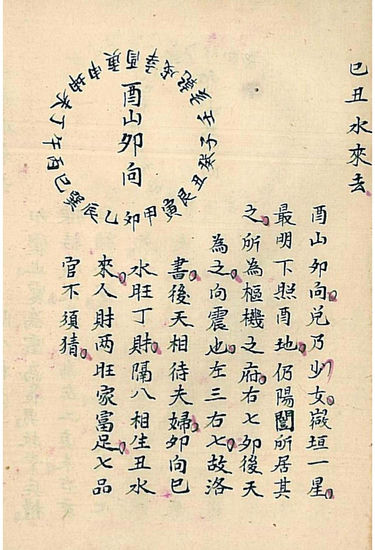 巳丑水來去
坤申庚酉辛戌乾亥壬子癸丑艮寅甲卯乙辰巽巳丙午丁未
酉山卯向
酉山卯向。兌乃少女。嶽垣一星。
最明下照酉地。仍陽闔所居其
之。所為樞機之府。右七卯後天
為之。向震也。左三右七。故洛
書。後天相待夫婦。卯向巳
水旺丁財。隔八相生丑水
來。人財兩旺家富足。七品
官不須猜。